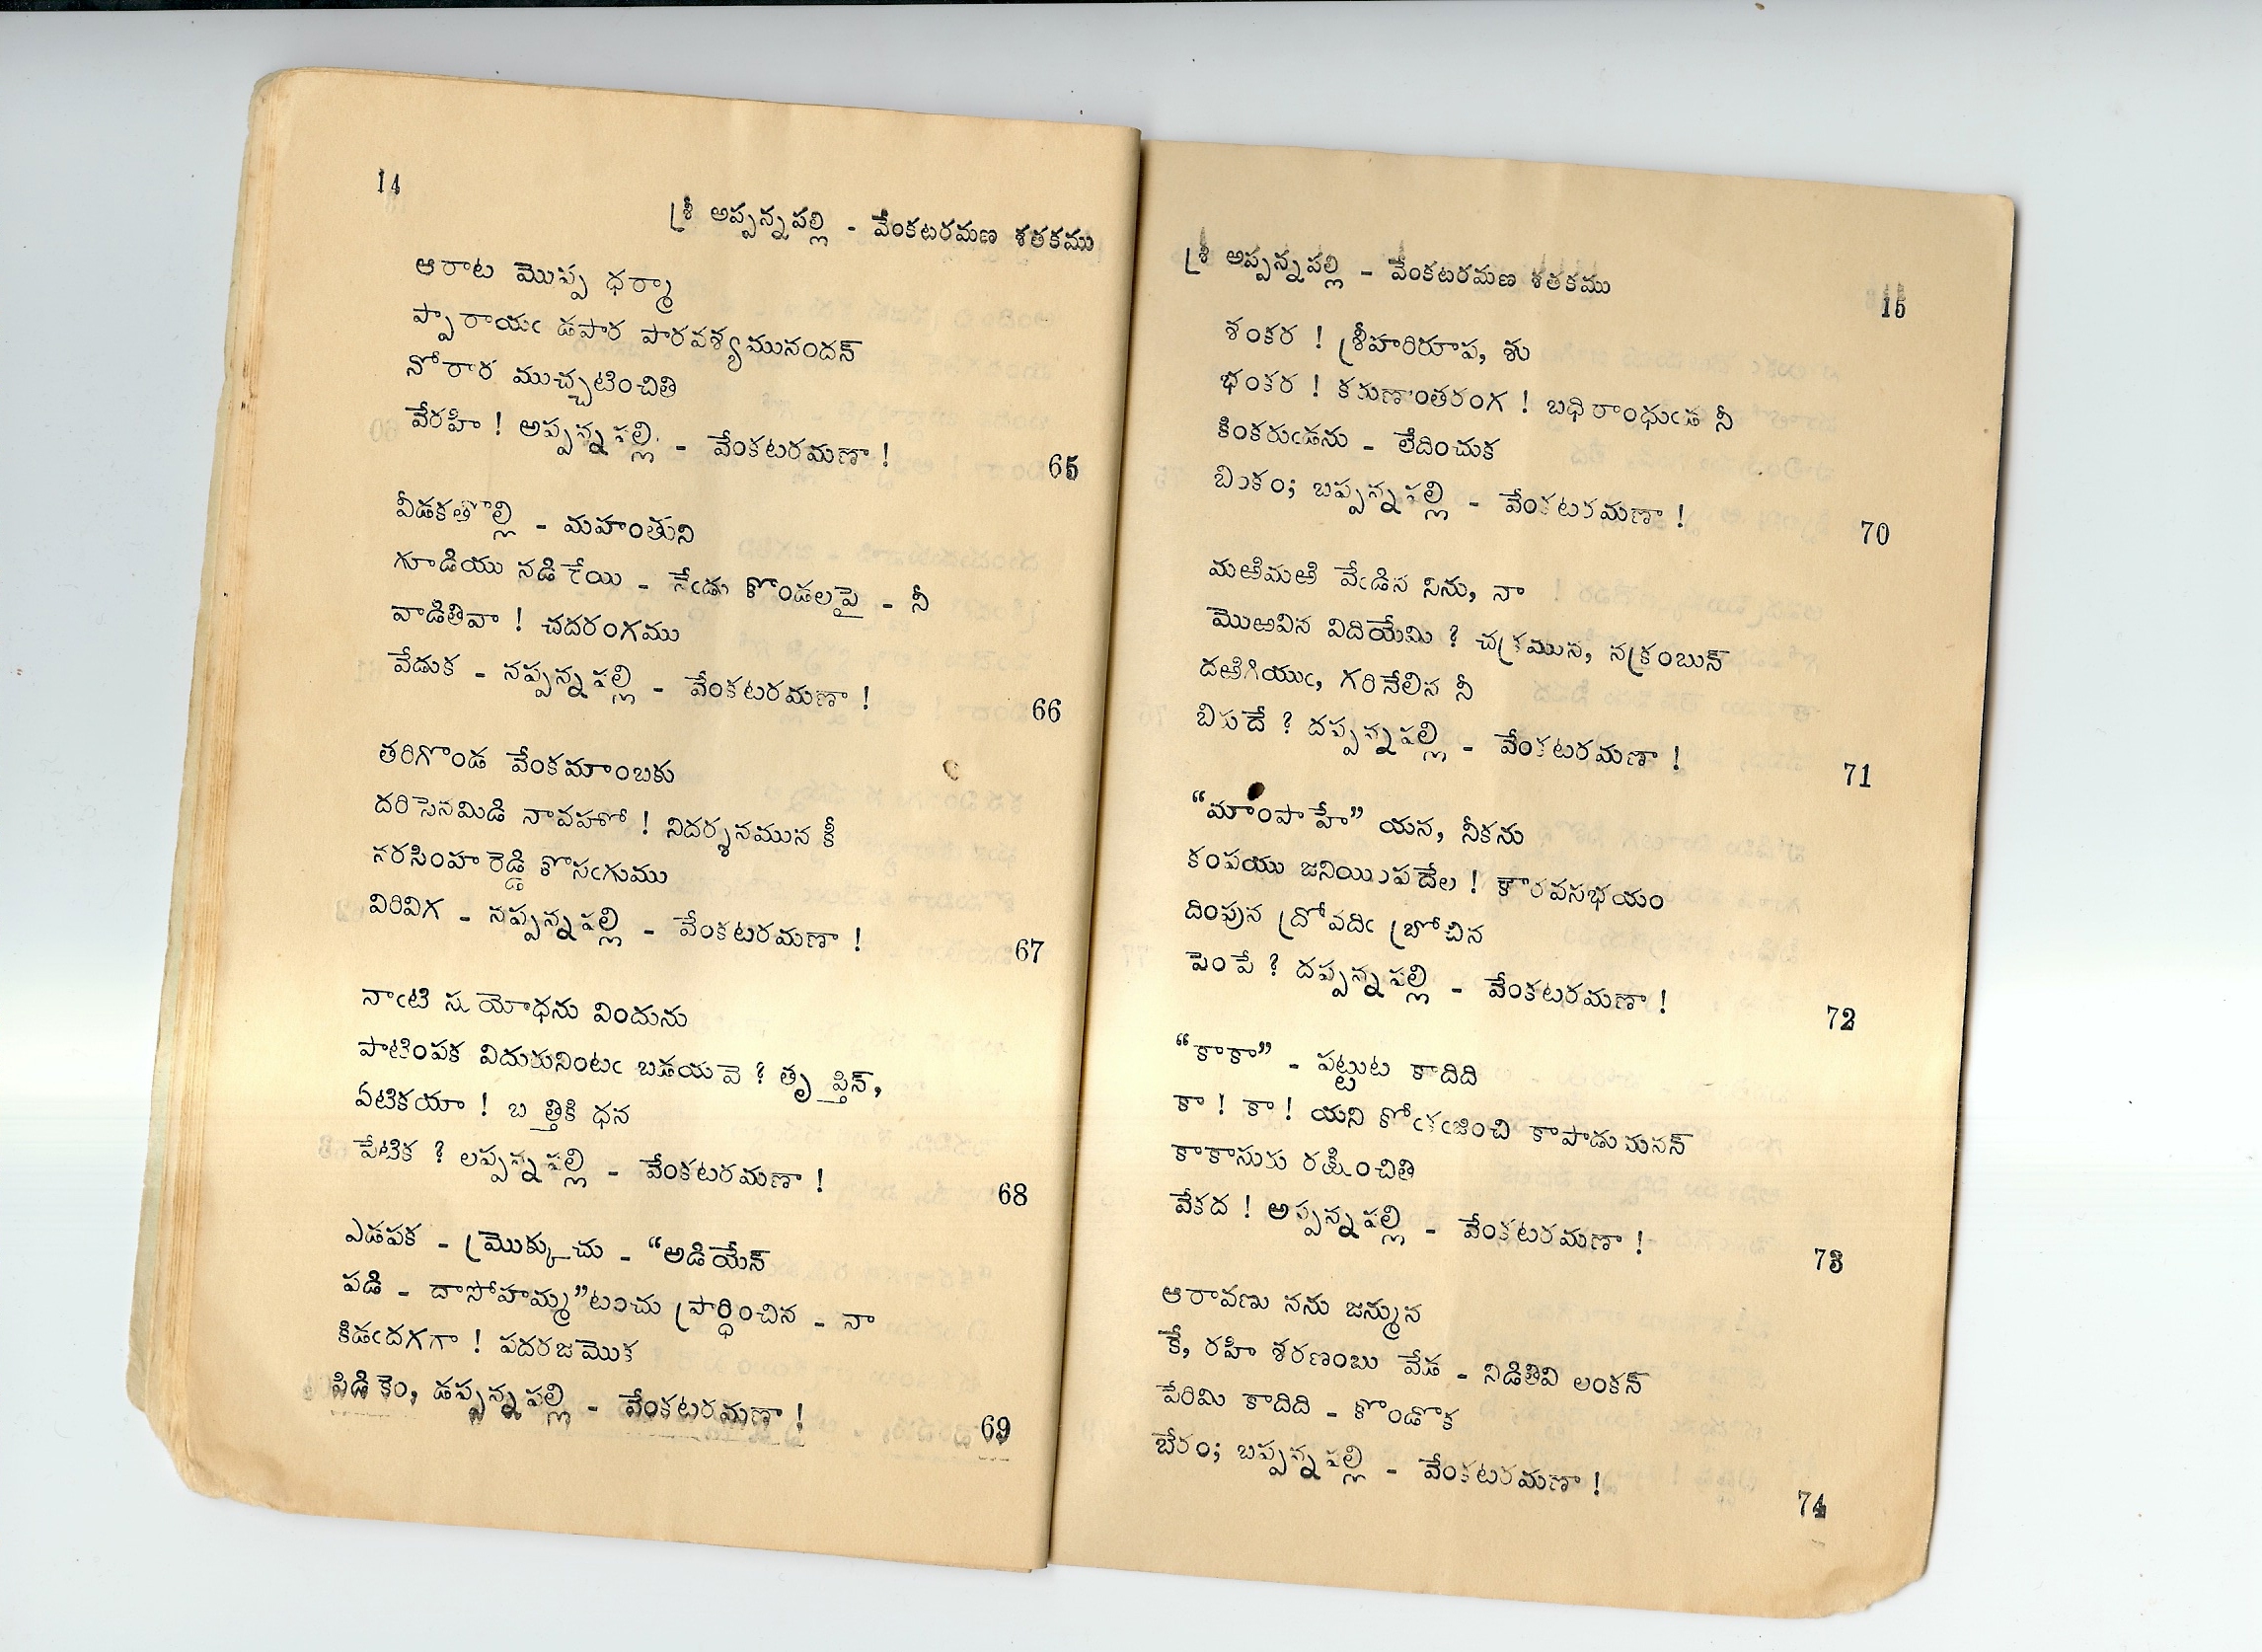 14
శ్రీ అప్పన్నపల్లి - వేంకటరమణ శతకము
ఆరాట మొప్ప ధర్మా
ప్పారాయఁ డపార పారవశ్యమునందన్
నోరార ముచ్చటించితి
వేరహి ! అప్పన్నపల్లి - వేంకటరమణా ! 65
వీడకతొల్లి - మహంతుని
గూడియు నడిరేయి - నేఁడు కొండలపై - నీ
వాడితివా ! చదరంగము
వేడుక - నప్పన్నపల్లి - వేంకటరమణా ! 66
తరిగొండ వేంకమాంబకు
దరిసెనమిడి నావహో ! నిదర్శనమున కీ
నరసింహ రెడ్డి కొసఁగుము
విరివిగ - నప్పన్నపల్లి - వేంకటరమణా ! 67
నాఁటి సుయోధను విందును
పాటింపక విదురునింటఁ బడయవె ? తృప్తిన్,
ఏటికయా ! బత్తికి ధన
పేటిక ? లప్పన్నపల్లి - వేంకటరమణా ! 68
ఎడపక - మ్రొక్కుచు - “అడియేన్
పడి - దాసోహమ్మ”టంచు ప్రార్ధించిన - నా
కిడఁదగగా ! పదరజమొక
పిడికెం, డప్పన్నపల్లి - వేంకటరమణా ! 69
శ్రీ అప్పన్నపల్లి - వేంకటరమణ శతకము
15
శంకర ! శ్రీహరిరూప, శు
భంకర ! కరుణాంతరంగ ! బధిరాంధుఁడ నీ
కింకరుఁడను - లేదించుక
బింకం; బప్పన్నపల్లి - వేంకటరమణా ! 70
మఱిమఱి వేఁడిన నిను, నా
మొఱవిన విదియేమి ? చక్రమున, నక్రంబున్
దఱిగియుఁ, గరినేలిన నీ
బిరుదే ? దప్పన్నపల్లి - వేంకటరమణా ! 71
“మాంపాహే” యన, నీకను
కంపయు జనియింపదేల ! కౌరవసభయం
దింపున ద్రోవదిఁ బ్రోచిన
పెంపే ? దప్పన్నపల్లి - వేంకటరమణా ! 72
“కాకా” - పట్టుట కాదిది
కా ! కా ! యని కోఁకఁజించి కాపాడుమనన్
కాకాసురు రక్షించితి
వేకద ! అప్పన్నపల్లి - వేంకటరమణా ! 73
ఆరావణు నను జన్మున
కే, రహి శరణంబు వేడ - నిడితివి లంకన్
పేరిమి కాదిది - కొండొక
బేరం; బప్పన్నపల్లి - వేంకటరమణా ! 74